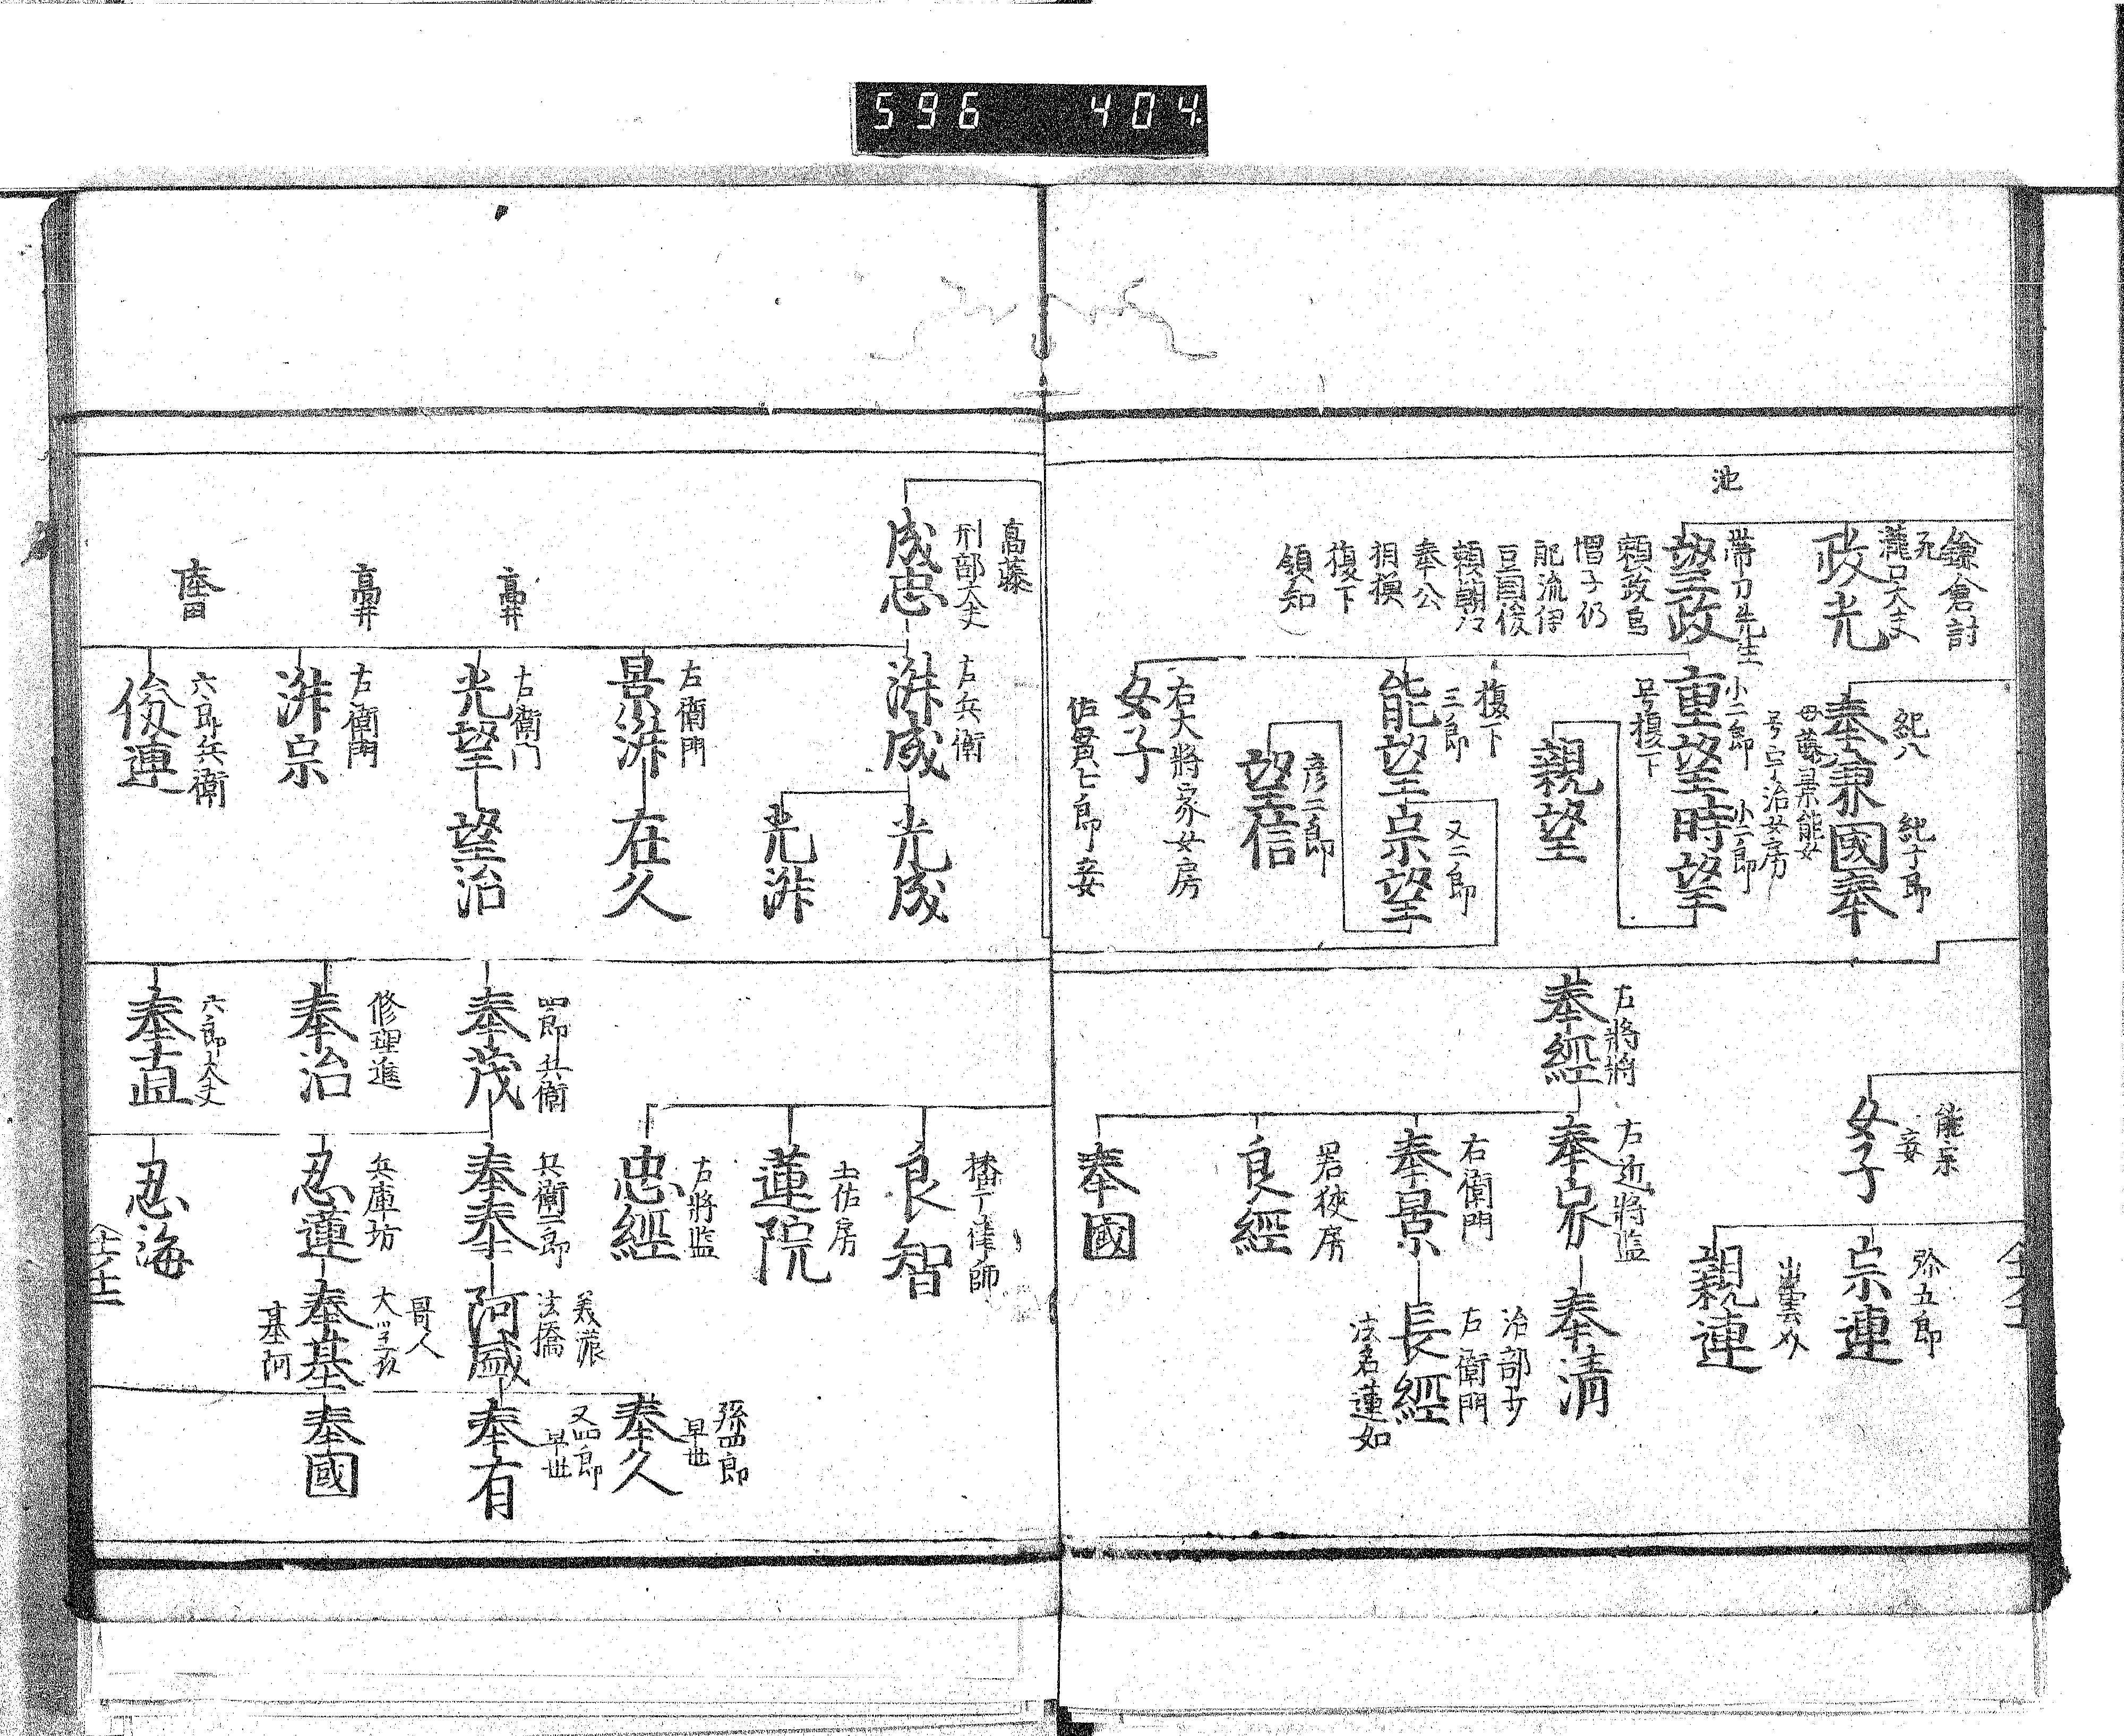 596 404
池
鎌倉討
死
瀧口大夫
政光
帯刀先生
望政
頼政烏
帽子仍
配流伊
豆國後
頼朝
奉公
相模
復下
領知
紀八
紀十郎
奉兼國奉
母藤景能女
号宇治女房
小二郎
小二郎
重望時望
号復下
親望
復下
三郎
又二郎
能望宗望
彦二郎
望信
右大將家女房
女子
佐貫七郎妾
能宗
妾
女子
弥五郎
宗連
出雲
親連
左將將
奉經
右近將監
奉宗
奉清
右衛門
奉景
治部少
右衛門
長經
法名蓮如
若狹房
良經
奉國
高藤
刑部大夫
成忠
右兵衛
洪成
光成
光洪
右衛門
景洪
在久
高井
右衛門
光望
望治
高井
右衛門
洪宗
六郎兵衛
俊連
四郎兵衛
奉茂
修理進
奉治
六郎大夫
奉直
律師
良智
土佐房
蓮院
右將監
忠經
兵衛二郎
奉奉
美濃
法橋
阿威
兵庫坊
忍蓮
哥人
奉基
基阿
忍海
孫四郎
早世
奉久
又四郎
早世
奉有
奉國